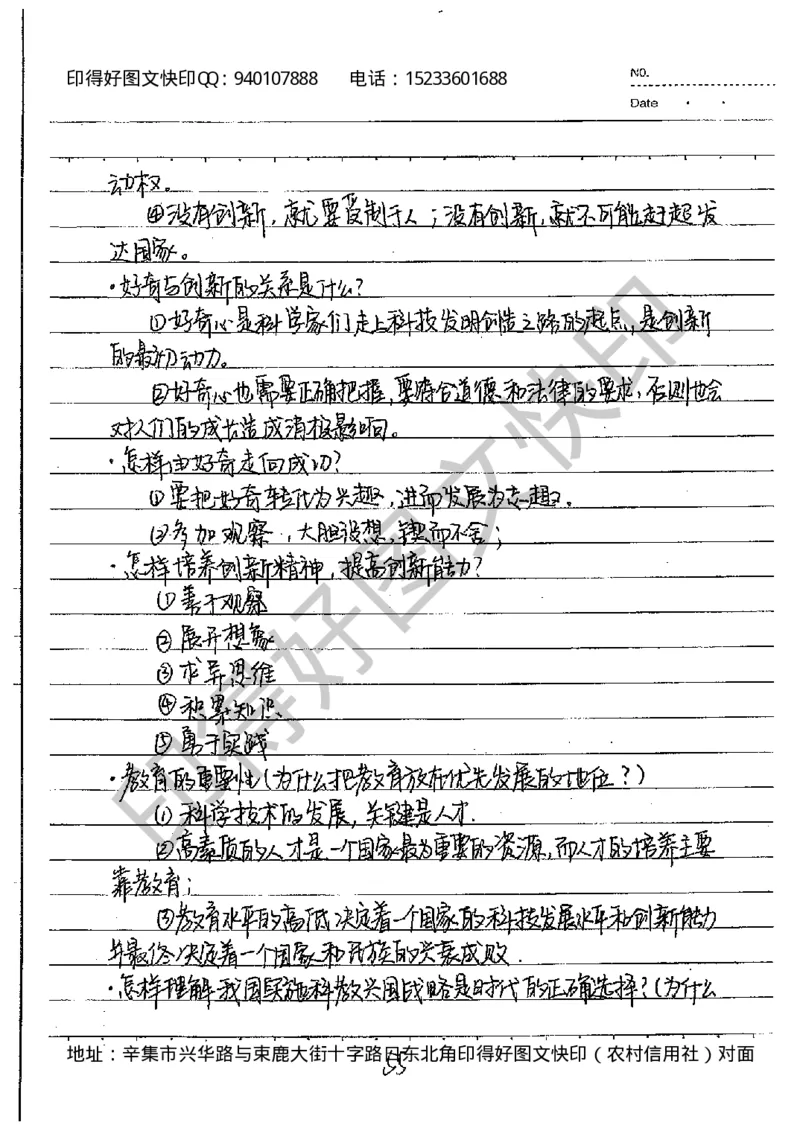 印得好图文快印QQ：940107888 电话：15233601688
NO.
Date
动权。
④没有创新，就要受制于人；没有创新，就不可能赶超发
达国家。
·好奇与创新的关系是什么？
①好奇心是科学家们走上科技发明创造之路的起点，是创新
的最初动力。
②好奇心也需要正确把握，要符合道德和法律的要求，否则也会
对人们的成长造成消极影响。
·怎样由好奇走向成功？
①要把好奇转化为兴趣，进而发展为志趣。
②参加观察，大胆设想，锲而不舍；
·怎样培养创新精神，提高创新能力？
①善于观察
②展开想象
③求异思维
④积累知识
⑤勇于实践
·教育的重要性（为什么把教育放在优先发展的地位？）
①科学技术的发展，关键是人才.
②高素质的人才是一个国家最为重要的资源，而人才的培养主要
靠教育；
③教育水平的高低决定着一个国家的科技发展水平和创新能力
并最终决定着一个国家和民族的兴衰成败.
·怎样理解我国实施科教兴国战略是时代的正确选择？（为什么
地址：辛集市兴华路与束鹿大街十字路口东北角印得好图文快印（农村信用社）对面
55
印得好图文快印